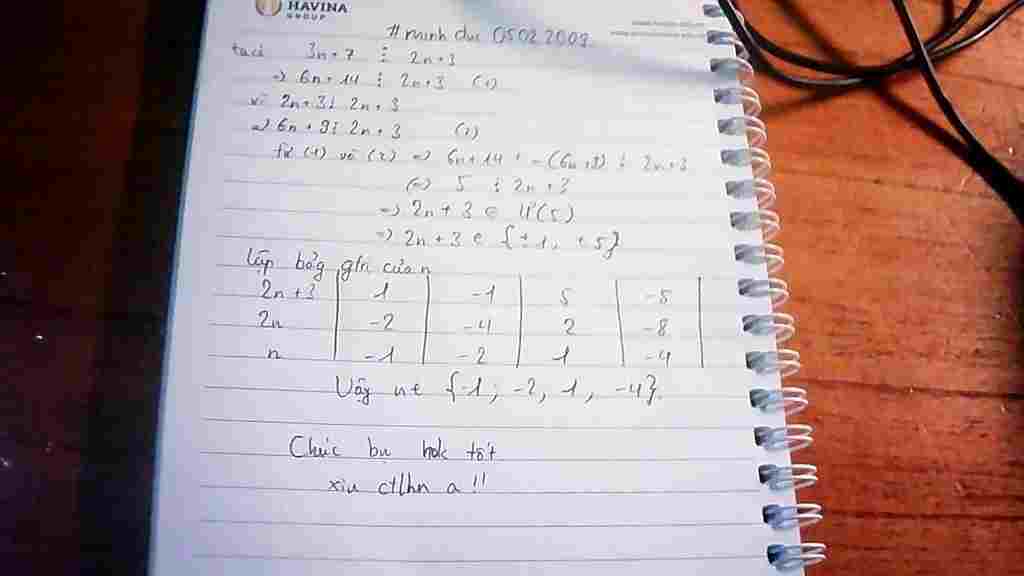 HAVINA
GROUP
#minh duc 05022009
ta có 3n+7 ⋮ 2n+3
=> 6n+14 ⋮ 2n+3 (1)
vì 2n+3 ⋮ 2n+3
=> 6n+9 ⋮ 2n+3 (2)
từ (1) và (2) => 6n+14 - (6n+9) ⋮ 2n+3
(=) 5 ⋮ 2n+3
=> 2n+3 ∈ Ư(5)
=> 2n+3 ∈ {±1, ±5}
lập bảg gtrị của n
2n+3 | 1 | -1 | 5 | -5 |
2n | -2 | -4 | 2 | -8 |
n | -1 | -2 | 1 | -4 |
Vậy n ∈ {-1; -2, 1, -4}.
Chúc bn hok tốt
xin ctlhn ạ!!